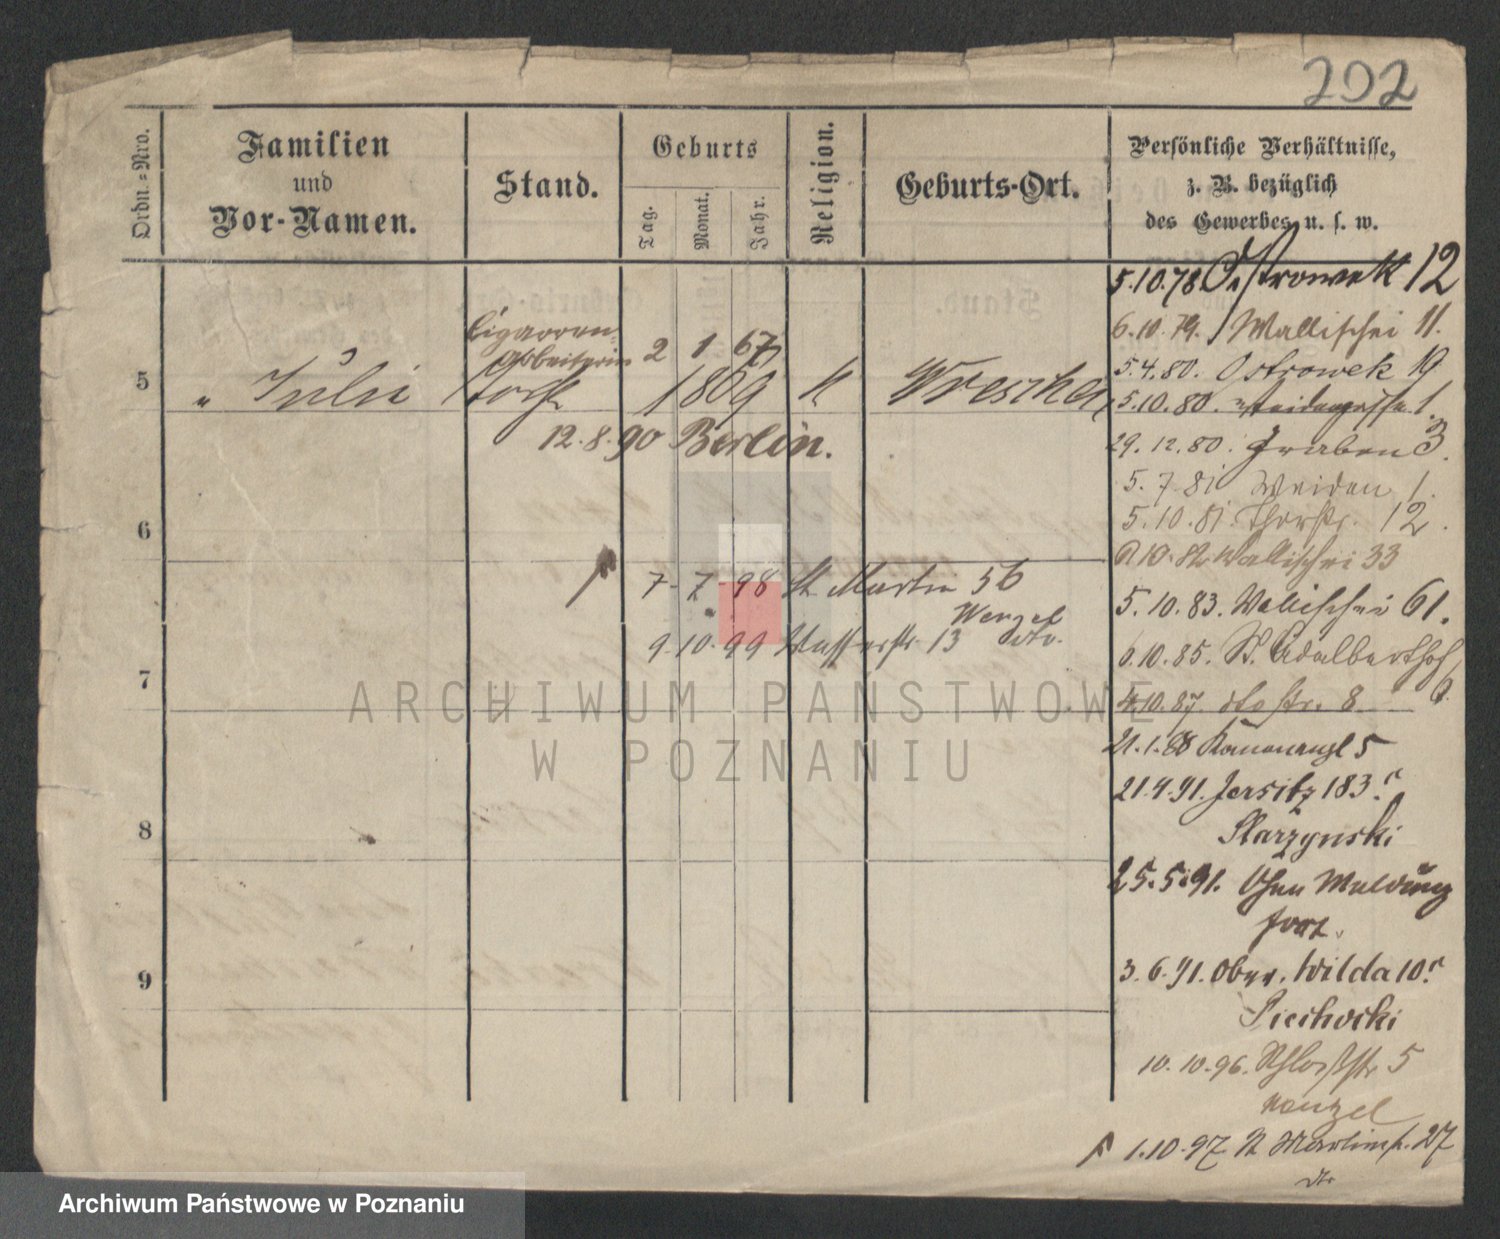 202
Ordn.=Nro.
Familien
und
Vor-Namen.
Stand.
Geburts
Tag.
Monat.
Jahr.
Religion.
Geburts-Ort.
Persönliche Verhältnisse,
z. B. bezüglich
des Gewerbes u. s. w.
5.10.78 Ostrowek 12
6.10.79. Wallischei 11.
5.4.80. Ostrowek 19
5.10.80. 1.
29.12.80. Graben 3.
5.7.81 Weiden 1.
5.10.81. Thorstr. 12.
10.82 Wallischei 33
5.10.83. Wallischei 61.
6.10.85. St. Adalberthof 6
4.10.87. dto str. 8.
21.1.88 Kanonengl 5
21.4.91. Jersitz 183.
Starzynski
25.5.91. Ohne Meldung
fort.
3.6.91. Ober. Wilda 10
Piechocki
10.10.96. Schloßstr 5
Wenzel
1.10.97. St Martinstr. 27
dto
Cigarren-
arbeiterin 2 1 67
5 " Julie Tocht 1869 K Wreschen
12.8.90 Berlin.
6
7-7-98 St Martin 56
Wenzel
9.10.99 Wasserstr 13 dto.
7
8
9
ARCHIWUM PAŃSTWOWE
W POZNANIU
Archiwum Państwowe w Poznaniu